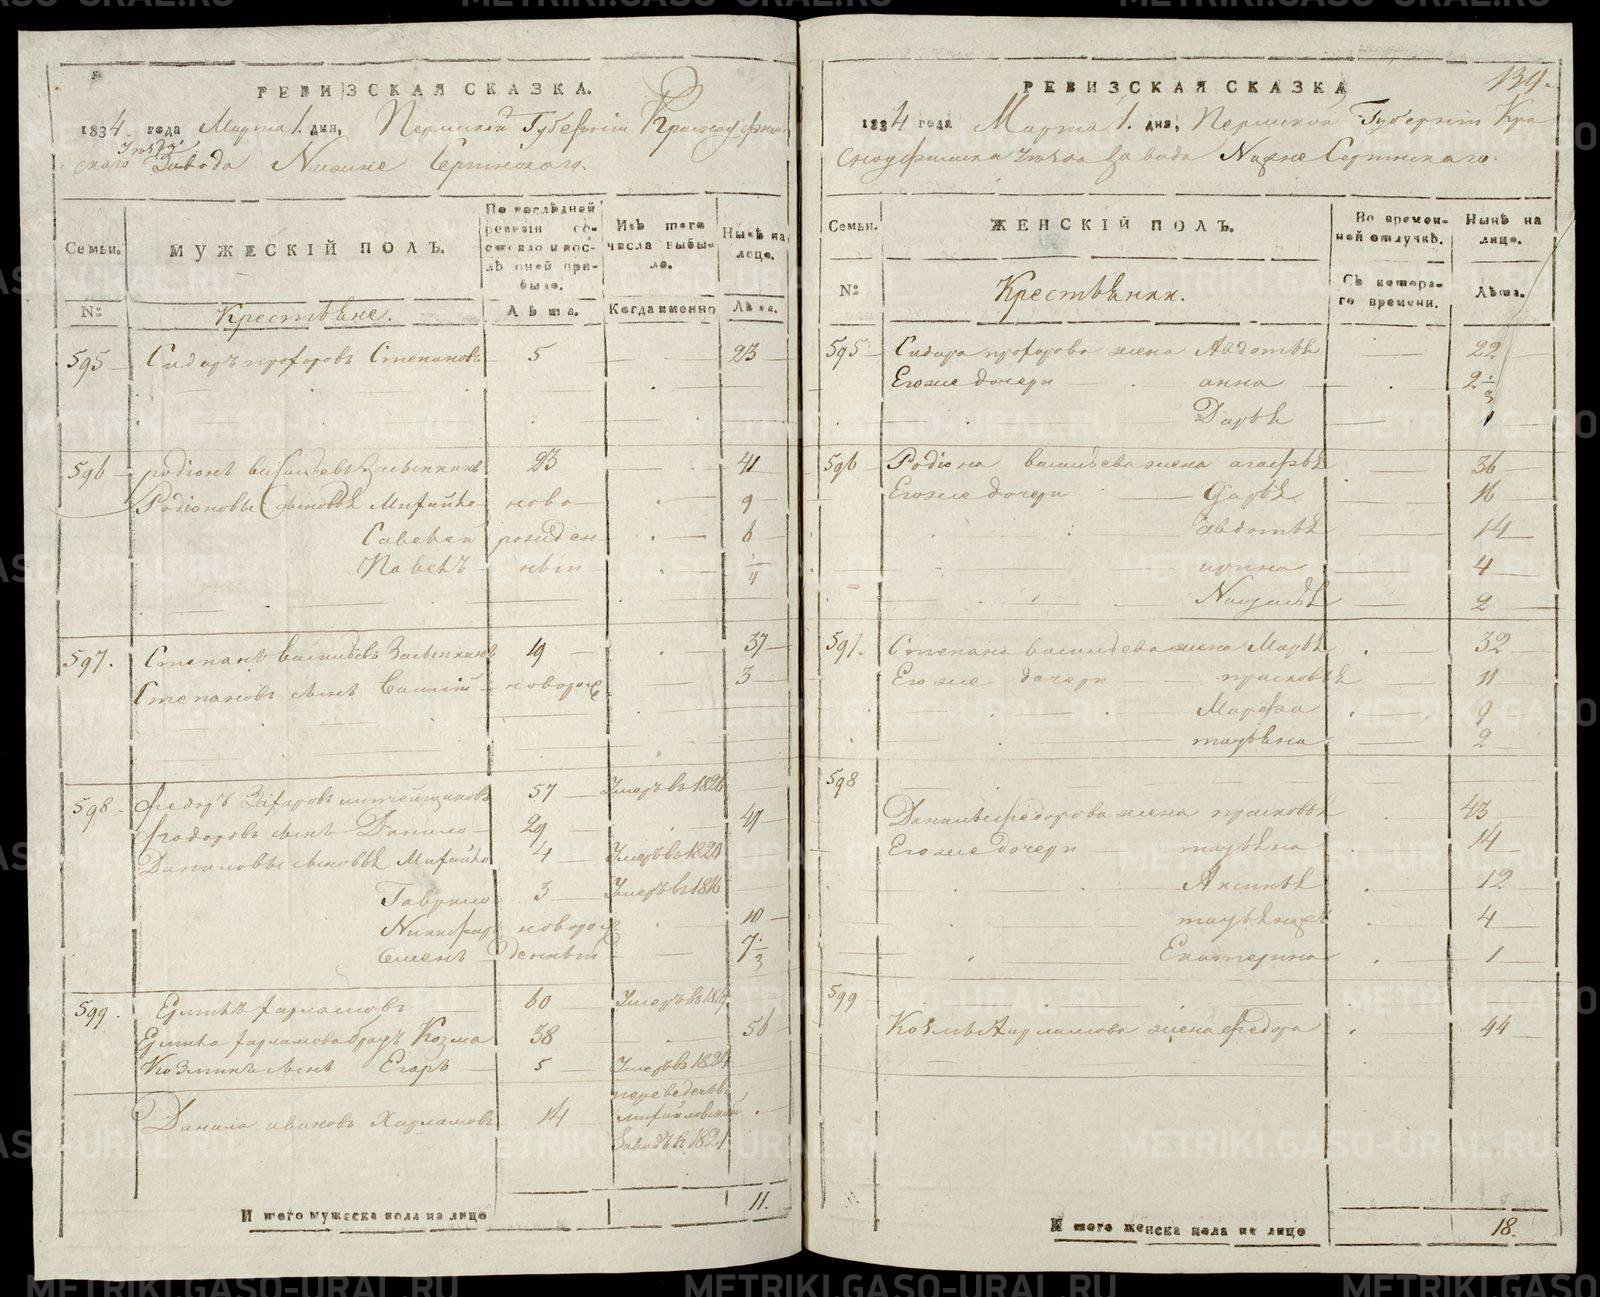 РЕВИЗСКАЯ СКАЗКА.
1834 года Марта 1. дня, Пермской Губернiи Красноуфим
скаго Уѣзда Завода Нижне Сергинскаго.
Семьи. МУЖЕСКIЙ ПОЛЪ. По послѣдней ревизiи состояло и послѣ оной прибыло. Изъ того числа выбыло. Нынѣ на лице.
№ Крестьяне. Лѣта. Когда именно Лѣта.
595 Сидаръ прохоровъ Степановъ 5 23
596 родiонъ васильевъ 23 41
Родiоновы сыновья Михайло ново 9
Савелей рожден 6
Павелъ ныи 1/4
597. Степанъ васильевъ 19 37
Степановъ сынъ Василiй новорож 3
598 Федоръ Захаровъ 57 Умеръ въ 1826
Федоровъ сынъ Данило 29 47
Даниловы сыновья Михайло 4 Умеръ въ 1820
Гаврило 3 Умеръ въ 1816
Никифоръ новорож 10
семенъ денныи 7 1/3
599. харламовъ 60 Умеръ въ 1819
харламова братъ Козма 38 56
Козминъ сынъ Егаръ 5 Умеръ въ 1824
Данила ивановъ Харламовъ 14 переведенъ въ михайловскiй заводъ въ 1821
Итого мужеска пола на лице 11.
РЕВИЗСКАЯ СКАЗКА 139.
1834 года Марта 1. дня, Пермской Губернiи Кра
сноуфимска уѣзда завода Нижне Сергинскаго.
Семьи. ЖЕНСКIЙ ПОЛЪ. Во временной отлучкѣ. Нынѣ на лице.
№ Крестьянки. Съ котораго времени. Лѣта.
595 Сидара прохорова жена Авдотья 22
Его же дочери анна 2 1/3
Дарья 1
596 Родiона васильева жена агафья 36
Его же дочери Дарья 16
авдотья 14
ирина 4
Наталья 2
597. Степана васильева жена Марья 32
Его же дочери прасковья 11
Марфа 9
татьяна 2
598
Данилы федорова жена прасковья 43
Его же дочери татьяна 14
Аксинья 12
татьяна 4
Екатерина 1
599
Козмы Харламова жена федора 44
Итого женска пола на лице 18.